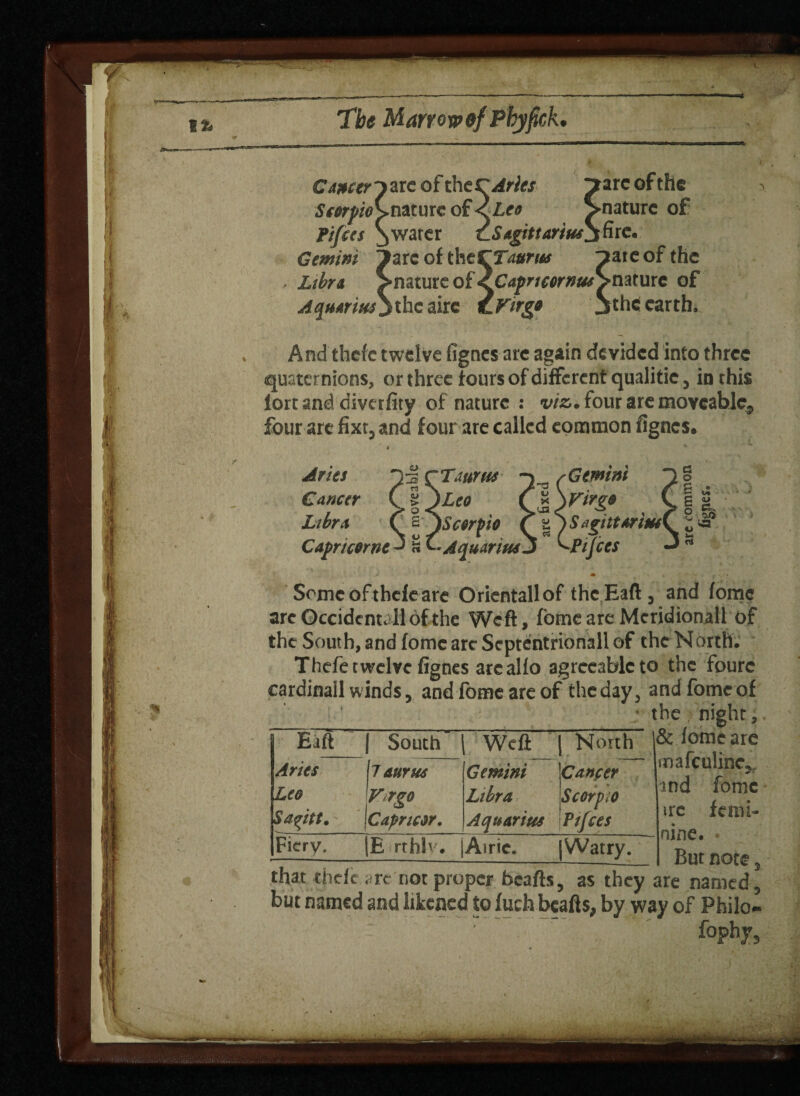 12
The Marrow of Phyſick.
Cancer } are of the { Aries } are of the
Scorpio } nature of { Leo } nature of
Piſces } water { Sagittarius } fire.
Gemini } are of the { Taurus } are of the
Libra } nature of { Capricornus } nature of
Aquarius } the aire { Virgo } the earth.
And theſe twelve ſignes are again devided into three
quaternions, or three fours of different qualitie, in this
ſort and diverſity of nature : viz. four are moveable,
four are fixt, and four are called common ſignes.
Aries } are moveable { Taurus } are fixed { Gemini } are common ſignes.
Cancer } { Leo } { Virgo }
Libra } { Scorpio } { Sagittarius }
Capricorne } { Aquarius } { Piſces }
Some of theſe are Orientall of the Eaſt, and ſome
are Occidentall of the Weſt, ſome are Meridionall of
the South, and ſome are Septentrionall of the North.
Theſe twelve ſignes are alſo agreeable to the foure
cardinall winds, and ſome are of the day, and ſome of
the night,
Eaſt | South | Weſt | North
Aries | Taurus | Gemini | Cancer
Leo | Virgo | Libra | Scorpio
Sagitt. | Capricor. | Aquarius | Piſces
Fiery. | Erthly. | Airie. | Watry.
& ſome are
maſculine,
and ſome
are femi-
nine.
But note,
that theſe are not proper beaſts, as they are named,
but named and likened to ſuch beaſts, by way of Philo-
ſophy,